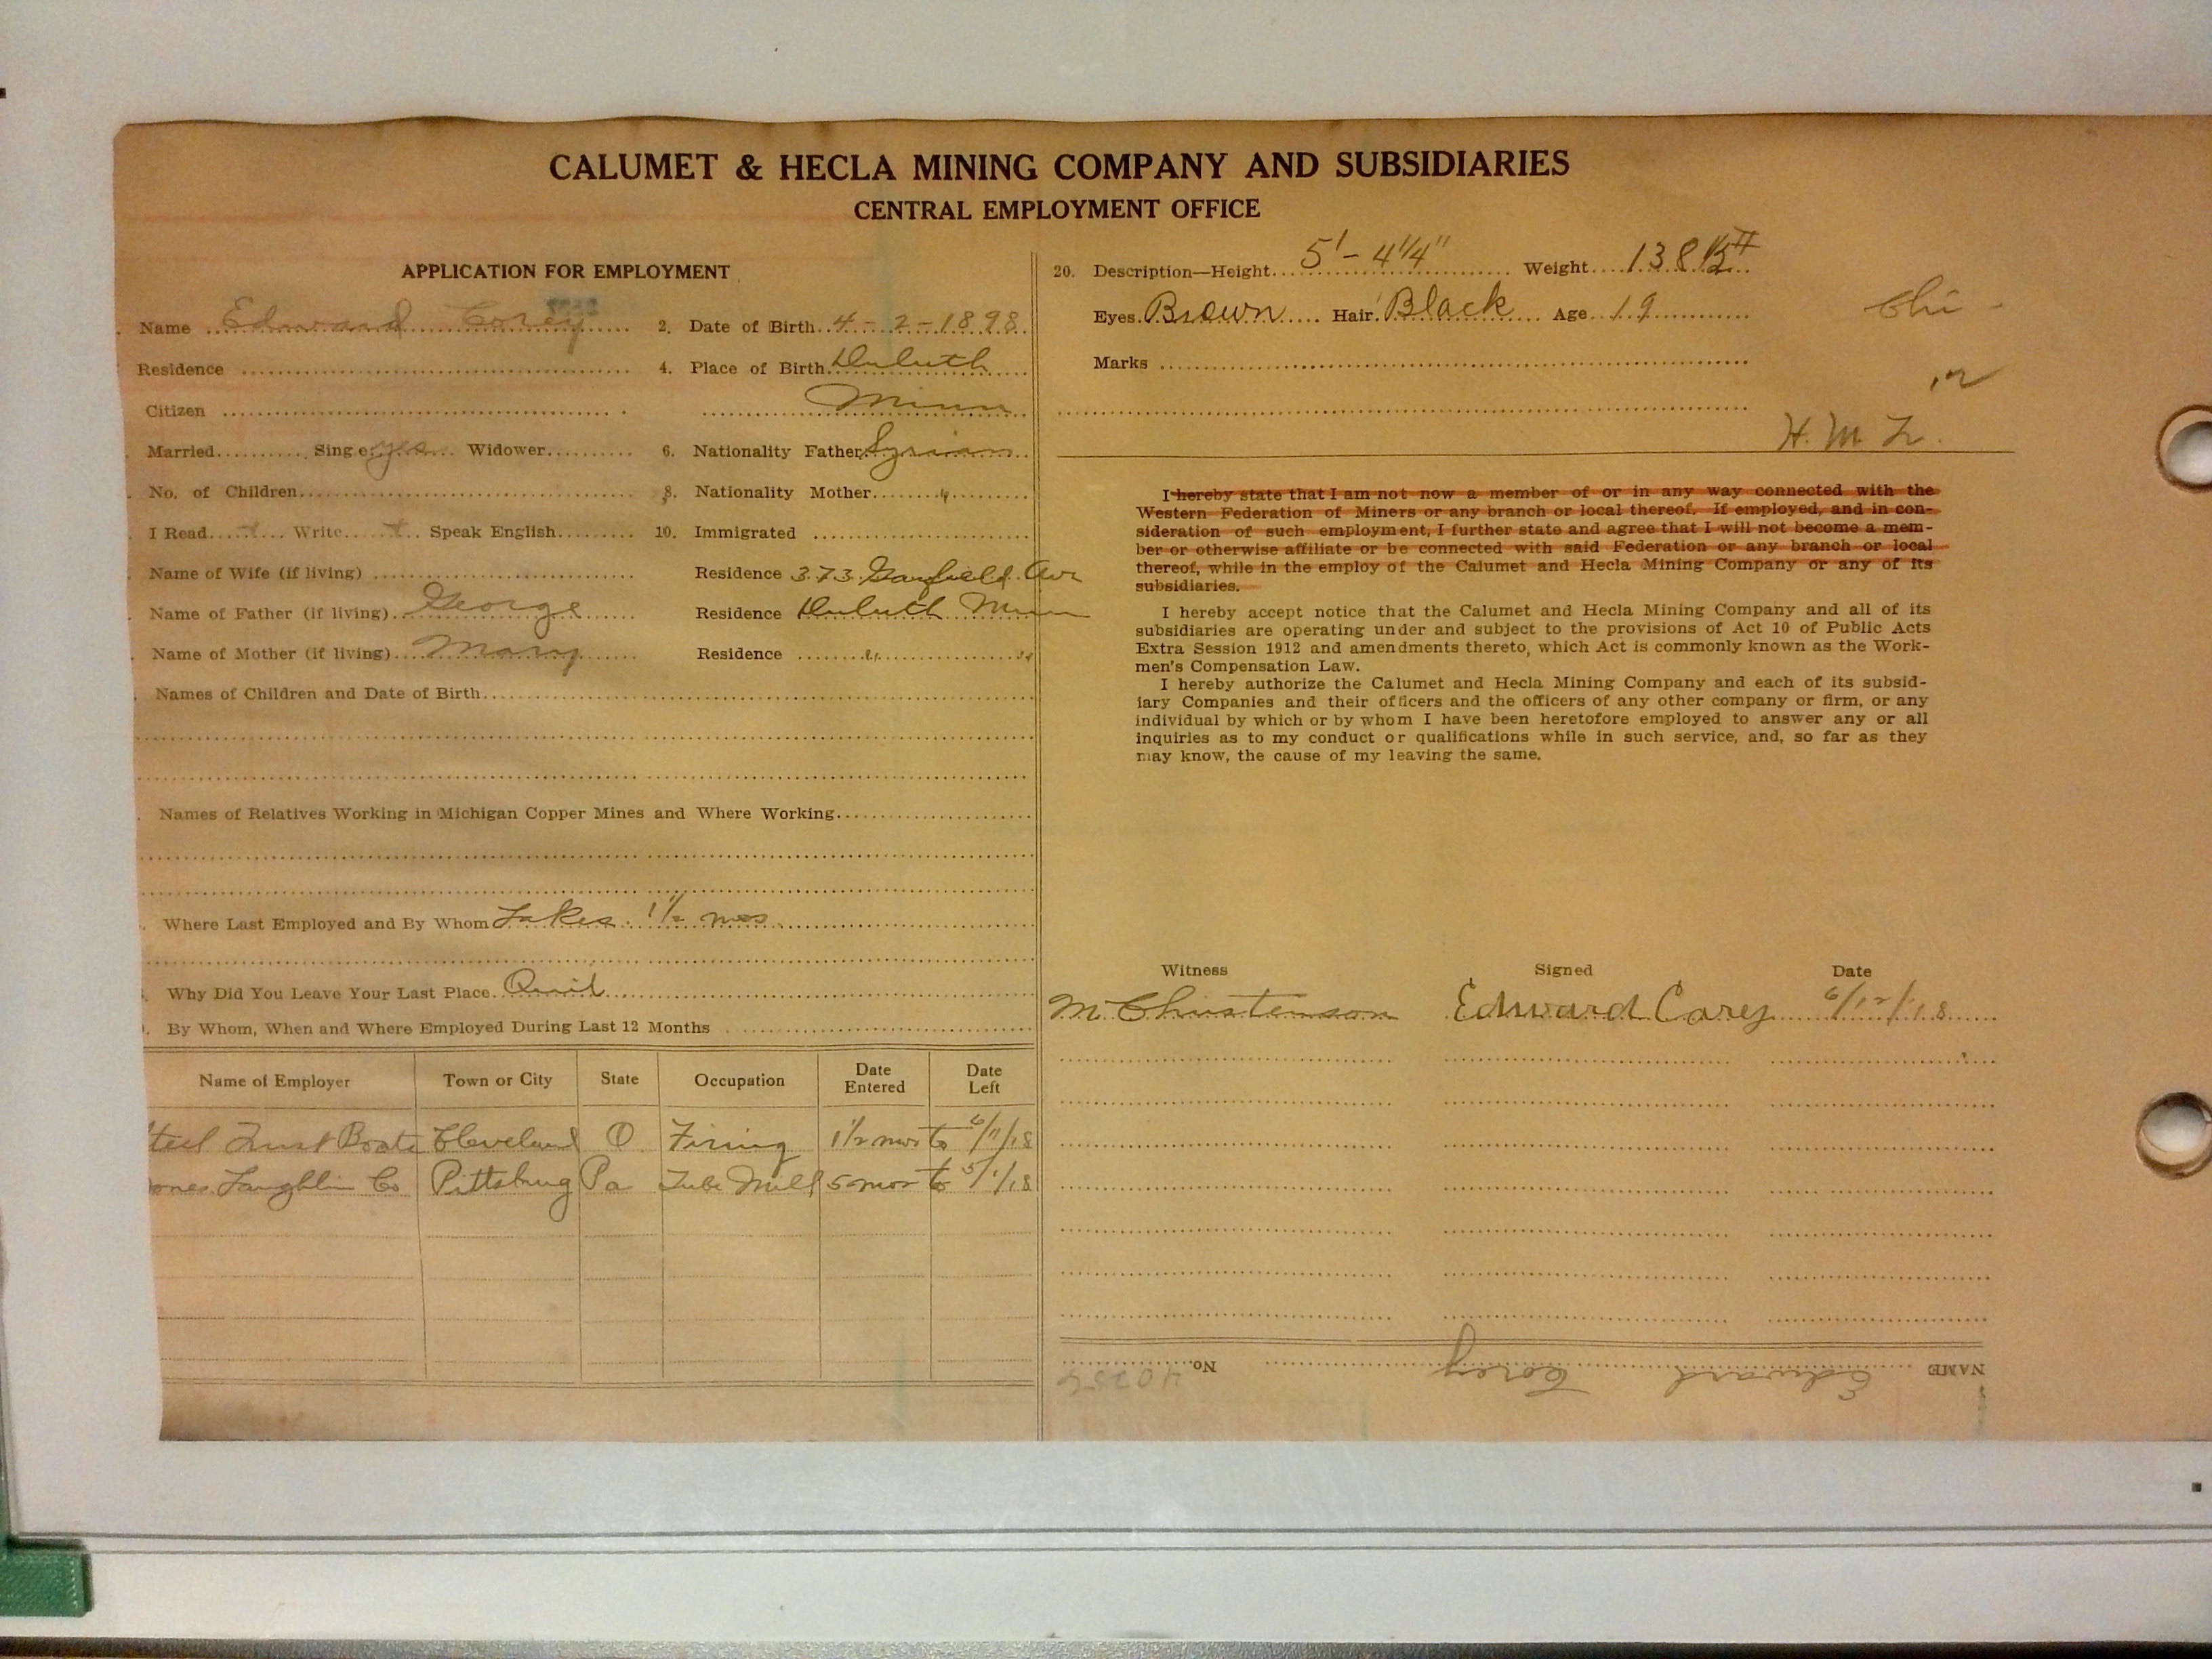 CALUMET & HECLA MINING COMPANY AND SUBSIDIARIES
CENTRAL EMPLOYMENT OFFICE
APPLICATION FOR EMPLOYMENT
Name Edward Corey 2. Date of Birth 4-2-1898
Residence 4. Place of Birth Duluth
Citizen Minn
Married Single yes Widower 6. Nationality Father Syrian
No. of Children 8. Nationality Mother "
I Read Write Speak English 10. Immigrated
Name of Wife (if living) Residence 373 Garfield Ave
Name of Father (if living) George Residence Duluth Minn
Name of Mother (if living) Mary Residence " "
Names of Children and Date of Birth
Names of Relatives Working in Michigan Copper Mines and Where Working
Where Last Employed and By Whom Lakes 1 1/2 mos
Why Did You Leave Your Last Place Quit
By Whom, When and Where Employed During Last 12 Months
Name of Employer Town or City State Occupation Date Entered Date Left
teel Trust Boats Cleveland O Firing 1 1/2 mos to 6/11/18
ones Laughlin Co Pittsburg Pa Tube Mill 5 mos to 5/1/18
20. Description—Height 5'-4 1/4" Weight 138 1/2 #
Eyes Brown Hair Black Age 19
Marks
H. M.
I hereby state that I am not now a member of or in any way connected with the
Western Federation of Miners or any branch or local thereof. If employed, and in con-
sideration of such employment, I further state and agree that I will not become a mem-
ber or otherwise affiliate or be connected with said Federation or any branch or local
thereof, while in the employ of the Calumet and Hecla Mining Company or any of its
subsidiaries.
I hereby accept notice that the Calumet and Hecla Mining Company and all of its
subsidiaries are operating under and subject to the provisions of Act 10 of Public Acts
Extra Session 1912 and amendments thereto, which Act is commonly known as the Work-
men's Compensation Law.
I hereby authorize the Calumet and Hecla Mining Company and each of its subsid-
iary Companies and their officers and the officers of any other company or firm, or any
individual by which or by whom I have been heretofore employed to answer any or all
inquiries as to my conduct or qualifications while in such service, and, so far as they
may know, the cause of my leaving the same.
Witness Signed Date
M Christenson Edward Corey 6/12/18
NAME Edward Corey No.